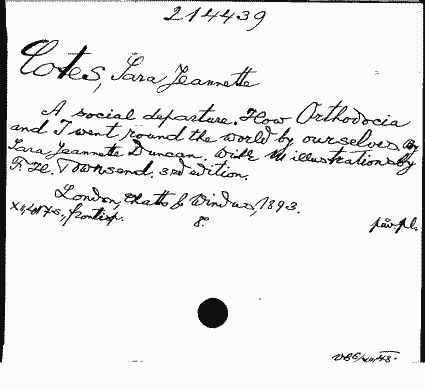 214439
Cotes, Sara Jeannette
A social departure. How Orthodocia
and I went round the world by ourselves. By
Sara Jeannette Duncan. With 111 illustrations by
F. H. Townsend. 3rd edition.
London, Chatto & Windus, 1893.
frontisp. 8°.